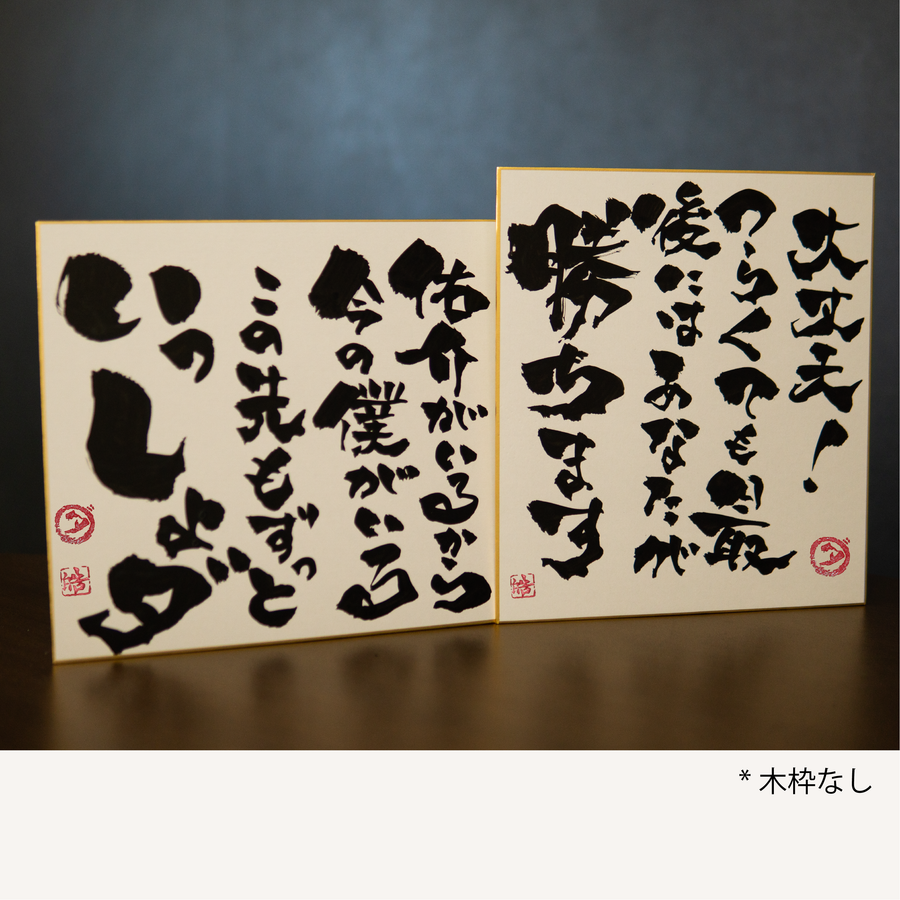 大丈夫!
つらくても最
後にはあなたが
勝ちます
佑介がいるから
今の僕がいる
この先もずっと
いっしょダ
* 木枠なし